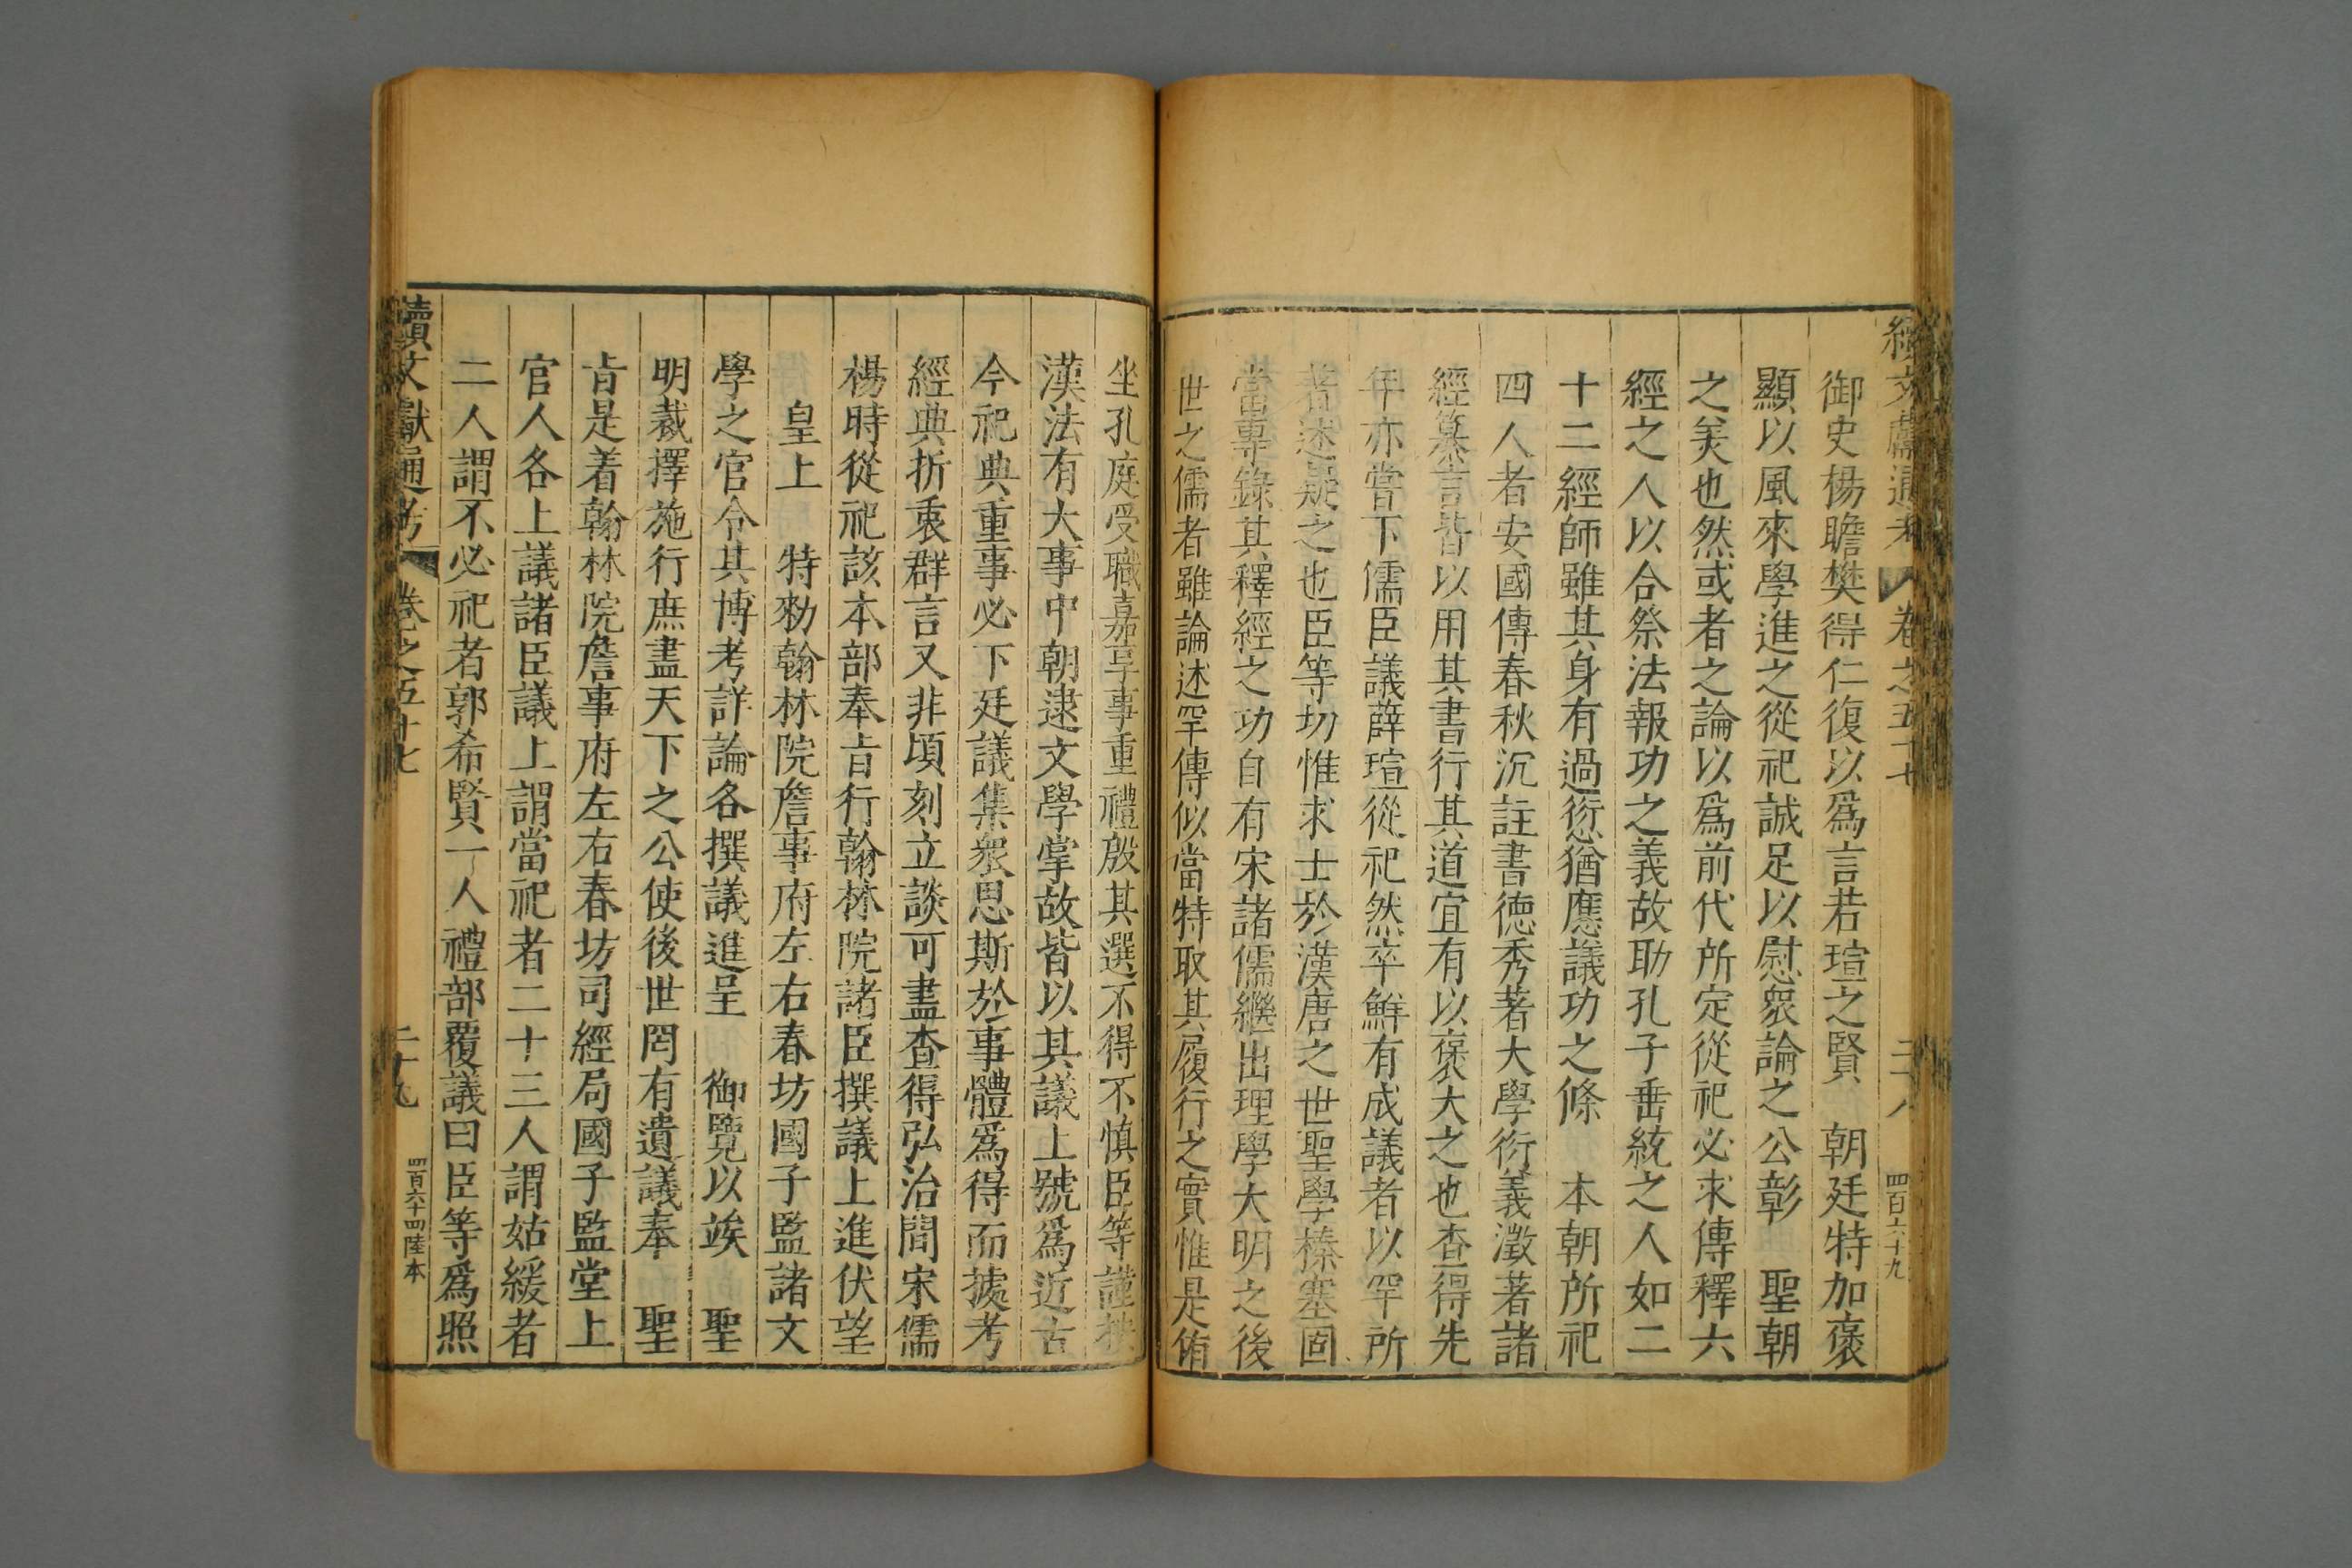 續文獻通考 卷之五十七 二八 四百六十九
御史楊瞻樊得仁復以爲言若瑄之賢 朝廷特加褒
顯以風來學進之從祀誠足以慰衆論之公彰 聖朝
之美也然或者之論以爲前代所定從祀必求傳釋六
經之人以合祭法報功之義故助孔子垂統之人如二
十二經師雖其身有過愆猶應議功之條 本朝所祀
四人者安國傳春秋沉註書德秀著大學衍義澂著諸
經纂言皆以用其書行其道宜有以褒大之也查得先
年亦嘗下儒臣議薛瑄從祀然卒鮮有成議者以罕所
著述疑之也臣等切惟求士於漢唐之世聖學榛塞固
當專錄其釋經之功自有宋諸儒繼出理學大明之後
世之儒者雖論述罕傳似當特取其履行之實惟是侑
坐孔庭受職嘉享事重禮殷其選不得不慎臣等謹按
漢法有大事中朝逮文學掌故皆以其議上號爲近古
今祀典重事必下廷議集衆思斯於事體爲得而據考
經典折衷群言又非頃刻立談可盡查得弘治間宋儒
楊時從祀該本部奉旨行翰林院諸臣撰議上進伏望
皇上 特勑翰林院詹事府左右春坊國子監諸文
學之官令其博考詳論各撰議進呈 御覽以竢 聖
明裁擇施行庶盡天下之公使後世罔有遺議奉 聖
旨是着翰林院詹事府左右春坊司經局國子監堂上
官人各上議諸臣議上謂當祀者二十三人謂姑緩者
二人謂不必祀者郭希賢一人禮部覆議曰臣等爲照
續文獻通考 卷之五十七 二十九 四百六十四陸本